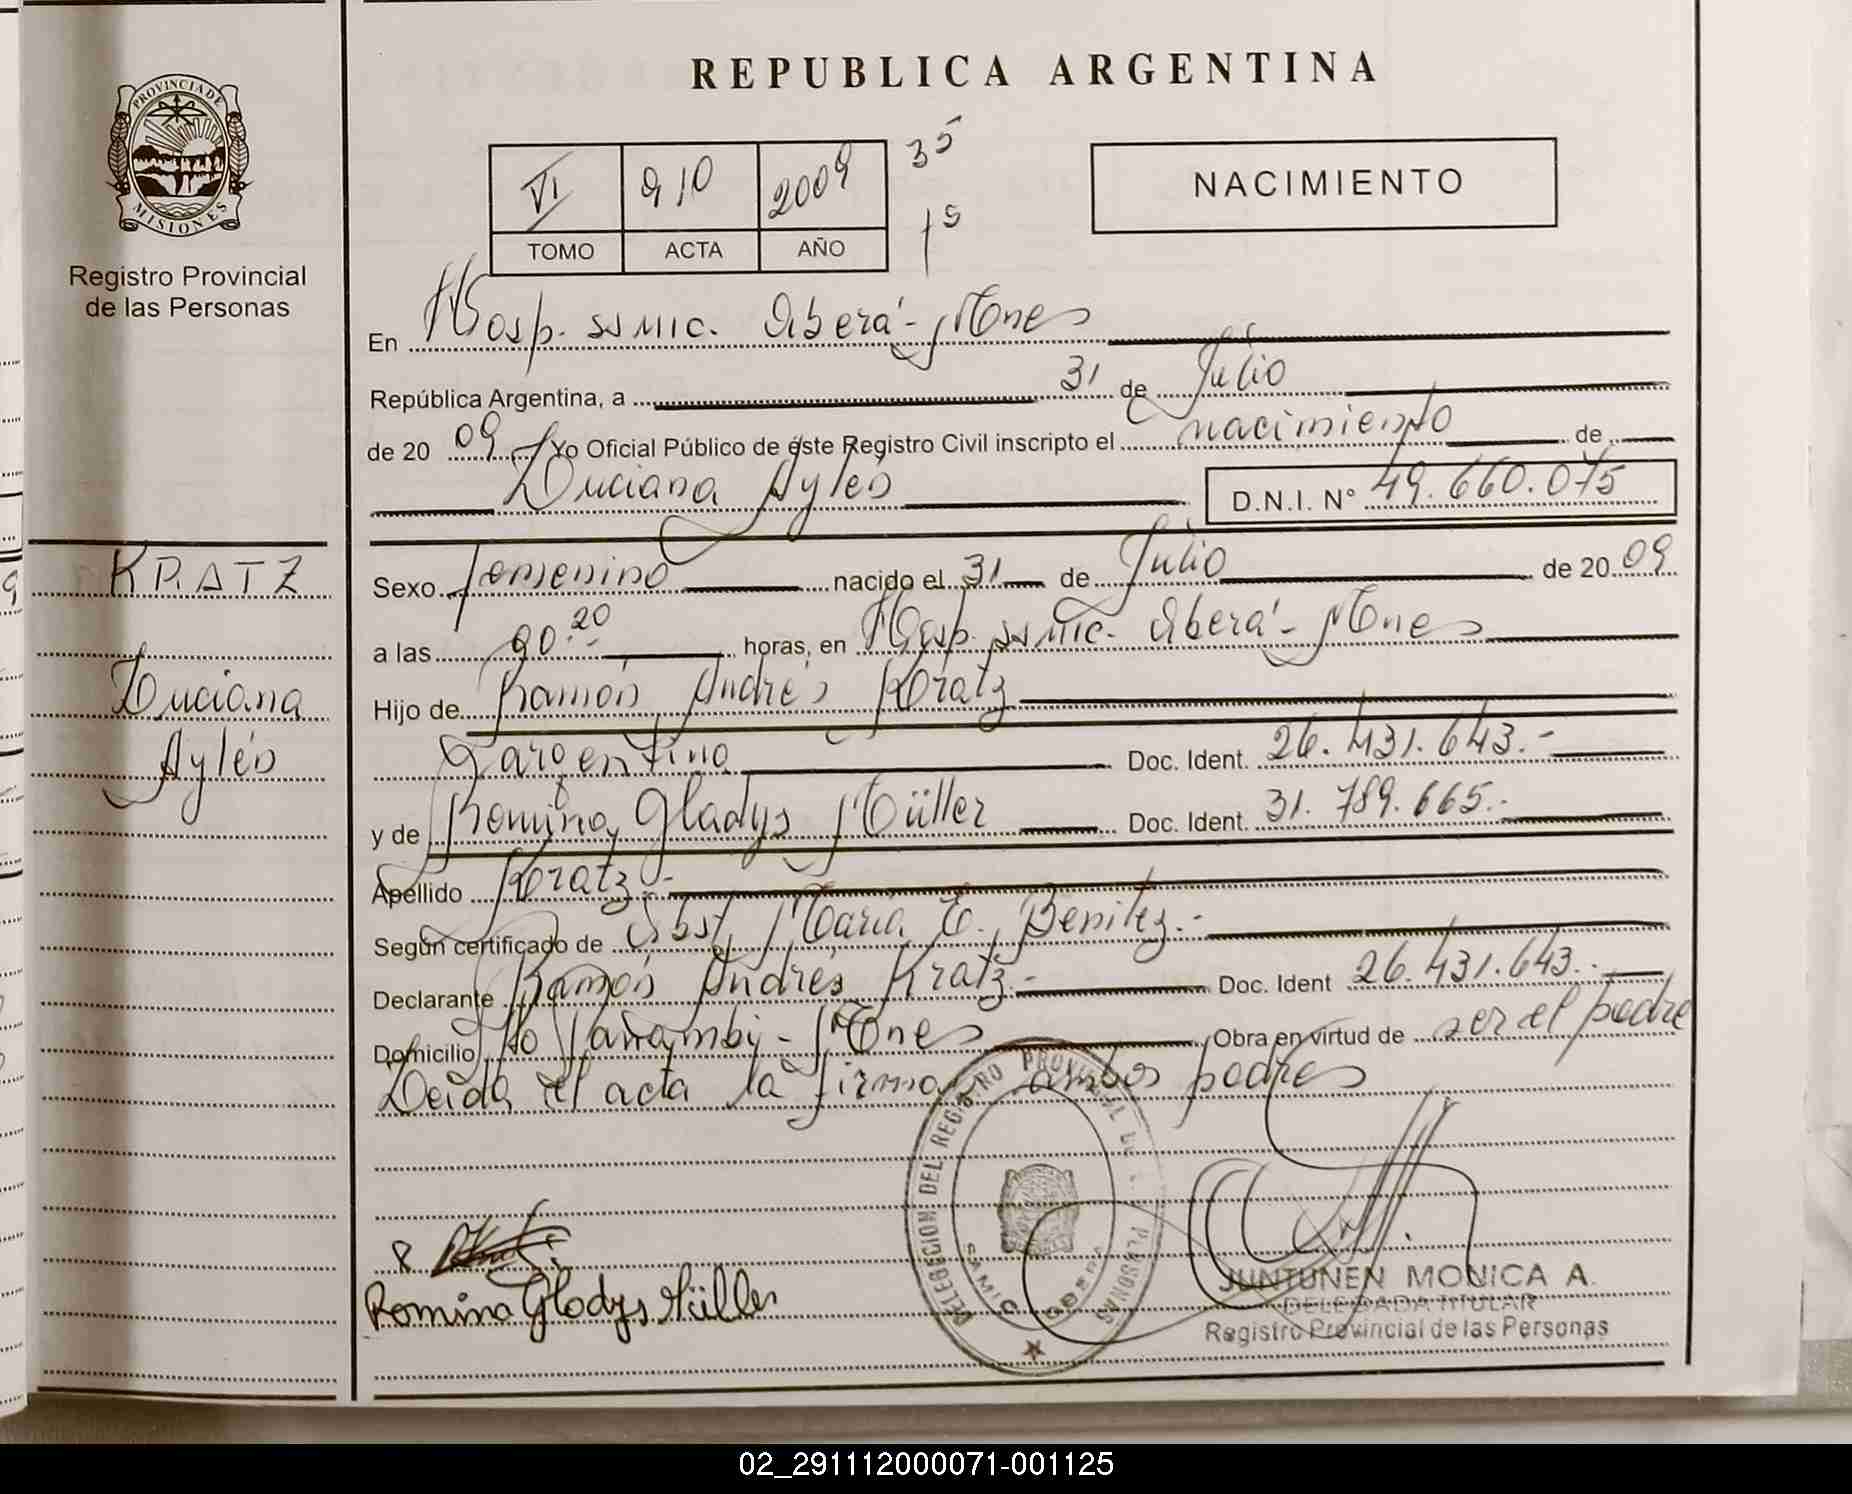 REPUBLICA ARGENTINA
PROVINCIA DE
MISIONES
Registro Provincial
de las Personas
VI 910 2009
TOMO ACTA AÑO
35
15
NACIMIENTO
En Hosp. SS Mic. Oberá - Mnes
República Argentina, a 31 de Julio
de 2009 Yo Oficial Público de éste Registro Civil inscripto el nacimiento de
Luciana Aylén D.N.I. N° 49.660.075
KRATZ
Luciana
Aylén
Sexo femenino nacido el 31 de Julio de 2009
a las 00:20 horas, en Hosp. SS Mic. Oberá - Mnes
Hijo de Ramón Andrés Kratz
argentino Doc. Ident. 26.431.643.-
y de Romina Gladys Müller Doc. Ident. 31.789.665.-
Apellido Kratz.-
Según certificado de Obst. María E. Benitez.-
Declarante Ramón Andrés Kratz.- Doc. Ident 26.431.643.-
Domicilio Yarrambi - Mnes Obra en virtud de ser el padre
Leida el acta la firman ambos padres
DELEGACION DEL REGISTRO PROVINCIAL DE LAS PERSONAS
Romina Gladys Müller
JUNTUNEN MONICA A.
DELEGADA TITULAR
Registro Provincial de las Personas
02_291112000071-001125